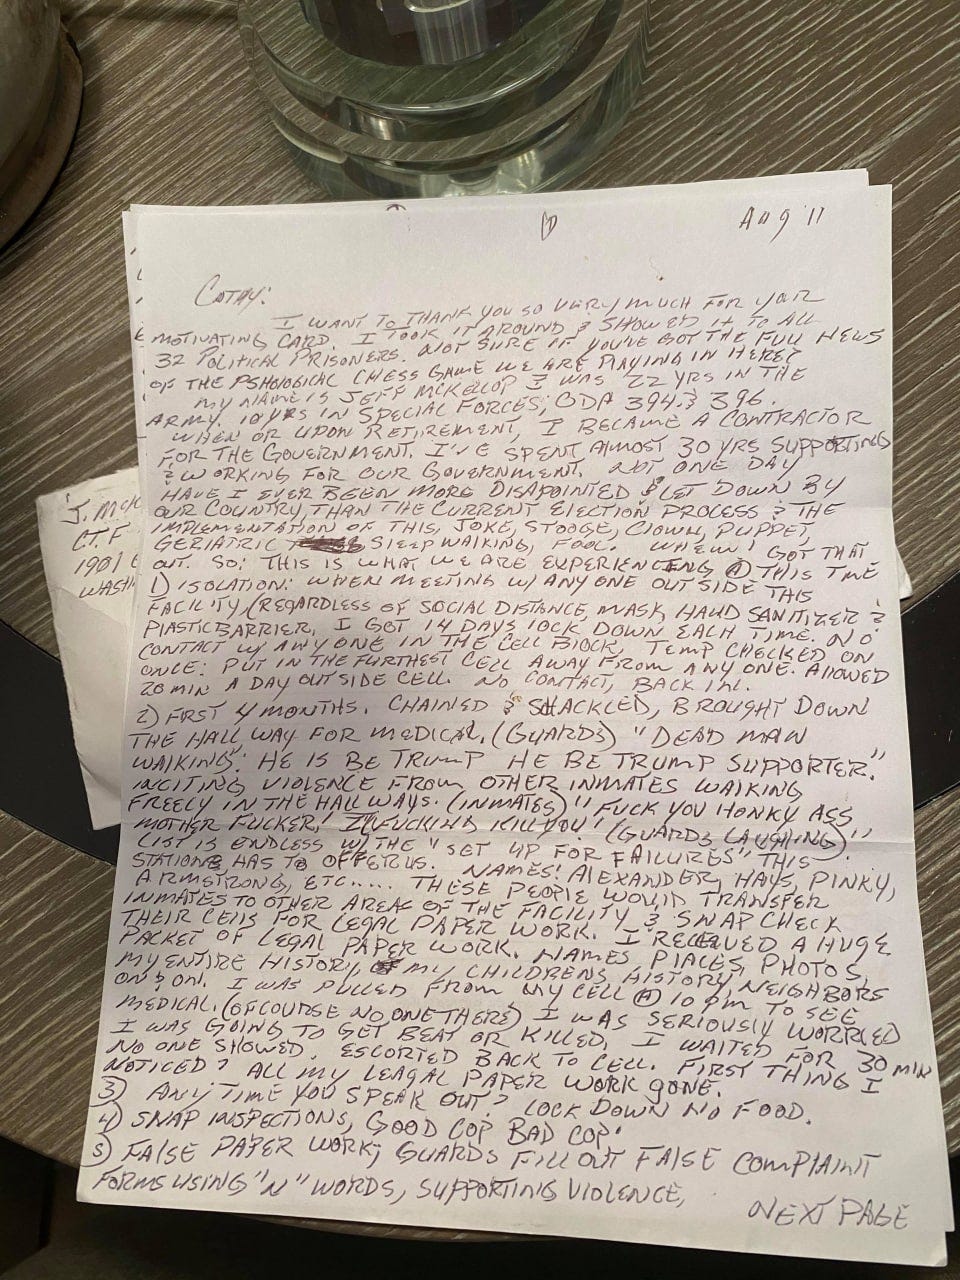 Aug 11
CATHY:
I WANT TO THANK YOU SO VERY MUCH FOR YOUR
MOTIVATING CARD. I TOOK IT AROUND & SHOWED IT TO ALL
32 POLITICAL PRISONERS. NOT SURE IF YOU'VE GOT THE FULL NEWS
OF THE PSHOLOGICAL CHESS GAME WE ARE PLAYING IN HERE?
MY NAME IS JEFF MCKELLOP & WAS 22 YRS IN THE
ARMY. 10 YRS IN SPECIAL FORCES, ODA 394 & 396.
WHEN OR UPON RETIREMENT, I BECAME A CONTRACTOR
FOR THE GOVERNMENT. I'VE SPENT ALMOST 30 YRS SUPPORTING
& WORKING FOR OUR GOVERNMENT. NOT ONE DAY
HAVE I EVER BEEN MORE DISAPOINTED & LET DOWN BY
OUR COUNTRY, THAN THE CURRENT ELECTION PROCESS & THE
IMPLEMENTATION OF THIS, JOKE, STOOGE, CLOWN, PUPPET,
GERIATRIC SLEEP WALKING, FOOL. WHEW! GOT THAT
OUT. SO: THIS IS WHAT WE ARE EXPERIENCING @ THIS TIME
1) ISOLATION: WHEN MEETING W/ ANYONE OUT SIDE THIS
FACILITY, (REGARDLESS OF SOCIAL DISTANCE, MASK, HAND SANITIZER &
PLASTIC BARRIER, I GOT 14 DAYS LOCK DOWN EACH TIME. NO
CONTACT W/ ANY ONE IN THE CELL BLOCK, TEMP CHECKED ON
ONCE: PUT IN THE FURTHEST CELL AWAY FROM ANY ONE. ALLOWED
20 MIN A DAY OUTSIDE CELL. NO CONTACT, BACK IN.
2) FIRST 4 MONTHS. CHAINED & SHACKLED, BROUGHT DOWN
THE HALL WAY FOR MEDICAL. (GUARDS) "DEAD MAN
WALKING. HE IS BE TRUMP HE BE TRUMP SUPPORTER."
INCITING VIOLENCE FROM OTHER INMATES WALKING
FREELY IN THE HALL WAYS. (INMATES) "FUCK YOU HONKY ASS
MOTHER FUCKER! I'LL FUCKING KILL YOU" (GUARDS LAUGHING)."
LIST IS ENDLESS W/ THE "SET UP FOR FAILURES" THIS
STATION HAS TO OFFER US. NAMES: ALEXANDER, HAYS, PINKY,
ARMSTRONG, ETC..... THESE PEOPLE WOULD TRANSFER
INMATES TO OTHER AREAS OF THE FACILITY & SNAP CHECK
THEIR CELLS FOR LEGAL PAPER WORK. I RECEIVED A HUGE
PACKET OF LEGAL PAPER WORK. NAMES PLACES, PHOTOS,
MY ENTIRE HISTORY, MY CHILDRENS HISTORY, NEIGHBORS
ON & ON. I WAS PULLED FROM MY CELL @ 10 PM TO SEE
MEDICAL. (OFCOURSE NO ONE THERE) I WAS SERIOUSLY WORRIED
I WAS GOING TO GET BEAT OR KILLED. I WAITED FOR 30 MIN
NO ONE SHOWED. ESCORTED BACK TO CELL. FIRST THING I
NOTICED? ALL MY LEAGAL PAPER WORK GONE.
3) ANY TIME YOU SPEAK OUT? LOCK DOWN NO FOOD.
4) SNAP INSPECTIONS, GOOD COP BAD COP.
5) FALSE PAPER WORK; GUARDS FILL OUT FALSE COMPLAINT
FORMS USING "N" WORDS, SUPPORTING VIOLENCE,
NEXT PAGE
J. MCK
C.T.F.
1901 E
WASH